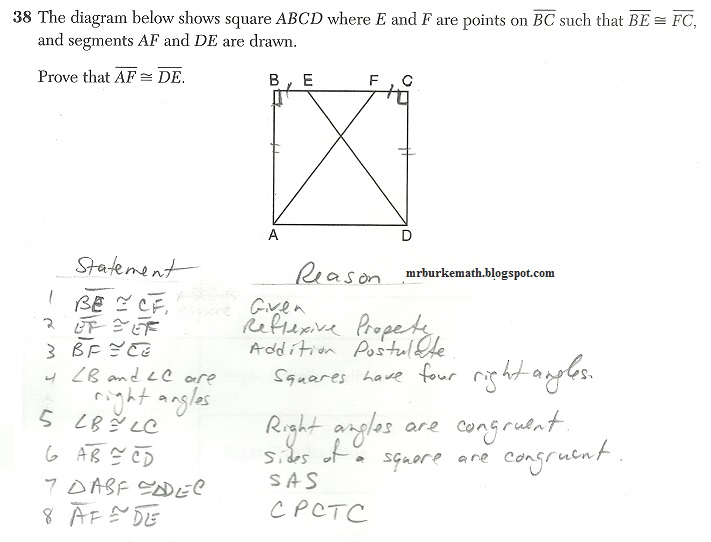 38 The diagram below shows square ABCD where E and F are points on BC such that BE ≅ FC,
and segments AF and DE are drawn.
Prove that AF ≅ DE.
B E F C
A D
Statement Reason mrburkemath.blogspot.com
1 BE ≅ CF, Given
2 EF ≅ EF Reflexive Property
3 BF ≅ CE Addition Postulate
4 ∠B and ∠C are Squares have four right angles.
right angles
5 ∠B ≅ ∠C Right angles are congruent.
6 AB ≅ CD Sides of a square are congruent.
7 △ABF ≅ △DEC SAS
8 AF ≅ DE CPCTC